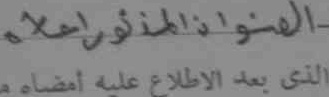 العنوان المذكور اعلاه
الذى بعد الاطلاع عليه أمضاه